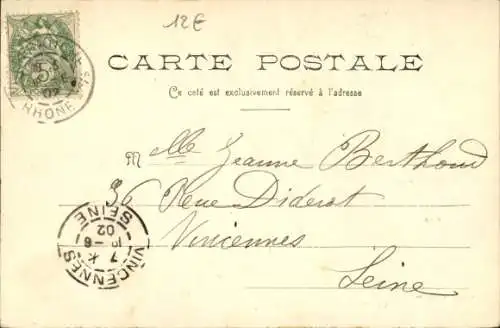 12€
5
02
RHONE
CARTE POSTALE
Ce coté est exclusivement réservé à l'adresse
M Mlle Jeanne Berthoud
36 Rue Diderot
Vincennes
Seine
VINCENNES
7
10 - 6
02
SEINE